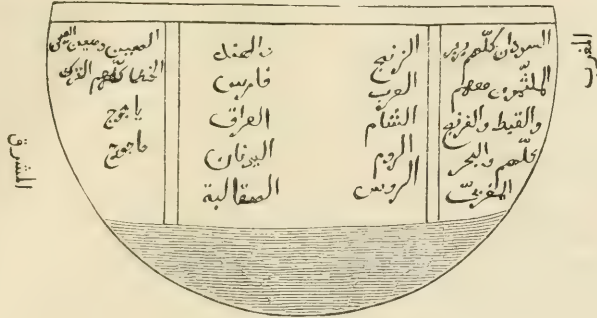 المغرب
السودان كلّهم وبربر
الملثّمون معهم
والقبط والفرنج
كلّهم والبحر
المغربيّ
الزنج
العرب
الشام
الروم
الروس
والهند
فارس
العراق
اليونان
الصقالبة
الصين وصين الصين
الخطا كلّهم الترك
ياجوج
ماجوج
المشرق